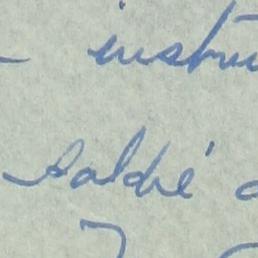 instru
soldé